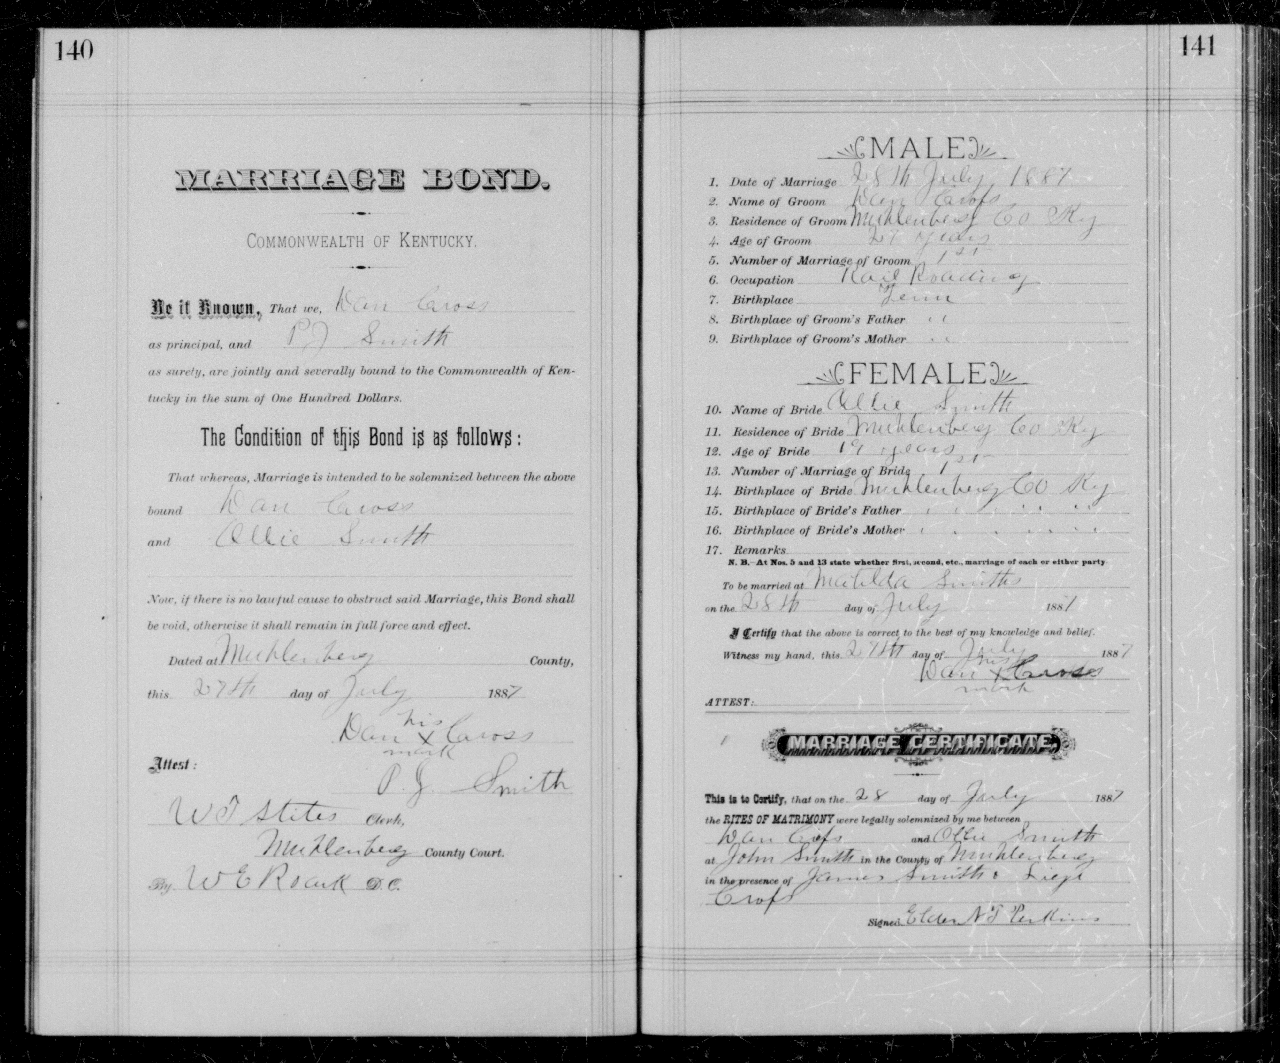 140
MARRIAGE BOND.
COMMONWEALTH OF KENTUCKY.
Be it Known, That we, Dan Cross
as principal, and P J Smith
as surety, are jointly and severally bound to the Commonwealth of Ken-
tucky in the sum of One Hundred Dollars.
The Condition of this Bond is as follows:
That whereas, Marriage is intended to be solemnized between the above
bound Dan Cross
and Ollie Smith
Now, if there is no lawful cause to obstruct said Marriage, this Bond shall
be void, otherwise it shall remain in full force and effect.
Dated at Muhlenberg County,
this 27th day of July 1887
his
Dan X Cross
mark
Attest:
P. J. Smith
W T Stites Clerk,
Muhlenberg County Court.
By W E Roark D.C.
141
MALE
1. Date of Marriage 28th July 1887
2. Name of Groom Dan Cross
3. Residence of Groom Muhlenberg Co Ky
4. Age of Groom years
5. Number of Marriage of Groom 1st
6. Occupation Rail Roading
7. Birthplace Tenn
8. Birthplace of Groom's Father " "
9. Birthplace of Groom's Mother " "
FEMALE
10. Name of Bride Ollie Smith
11. Residence of Bride Muhlenberg Co Ky
12. Age of Bride 19 years
13. Number of Marriage of Bride 1st
14. Birthplace of Bride Muhlenberg Co Ky
15. Birthplace of Bride's Father " " " "
16. Birthplace of Bride's Mother " " " "
17. Remarks
N. B.—At Nos. 5 and 13 state whether first, second, etc., marriage of each or either party
To be married at Matilda Smiths
on the 28th day of July 1887
I Certify that the above is correct to the best of my knowledge and belief.
Witness my hand, this 27th day of July 1887
his
Dan X Cross
mark
ATTEST:
MARRIAGE CERTIFICATE.
This is to Certify, that on the 28 day of July 1887
the RITES OF MATRIMONY were legally solemnized by me between
Dan Cross and Ollie Smith
at John Smith in the County of Muhlenberg
in the presence of James Smith &
Cross
Signed Elder N T Perkins